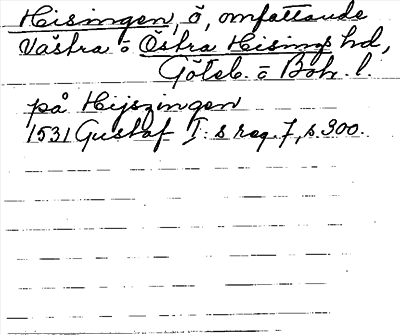 Hisingen, ö, omfattande
Västra o Östra Hisings hd,
Göteb. o Boh. l.
på Hijszingen
1531 Gustaf I:s reg. 7, s. 300.